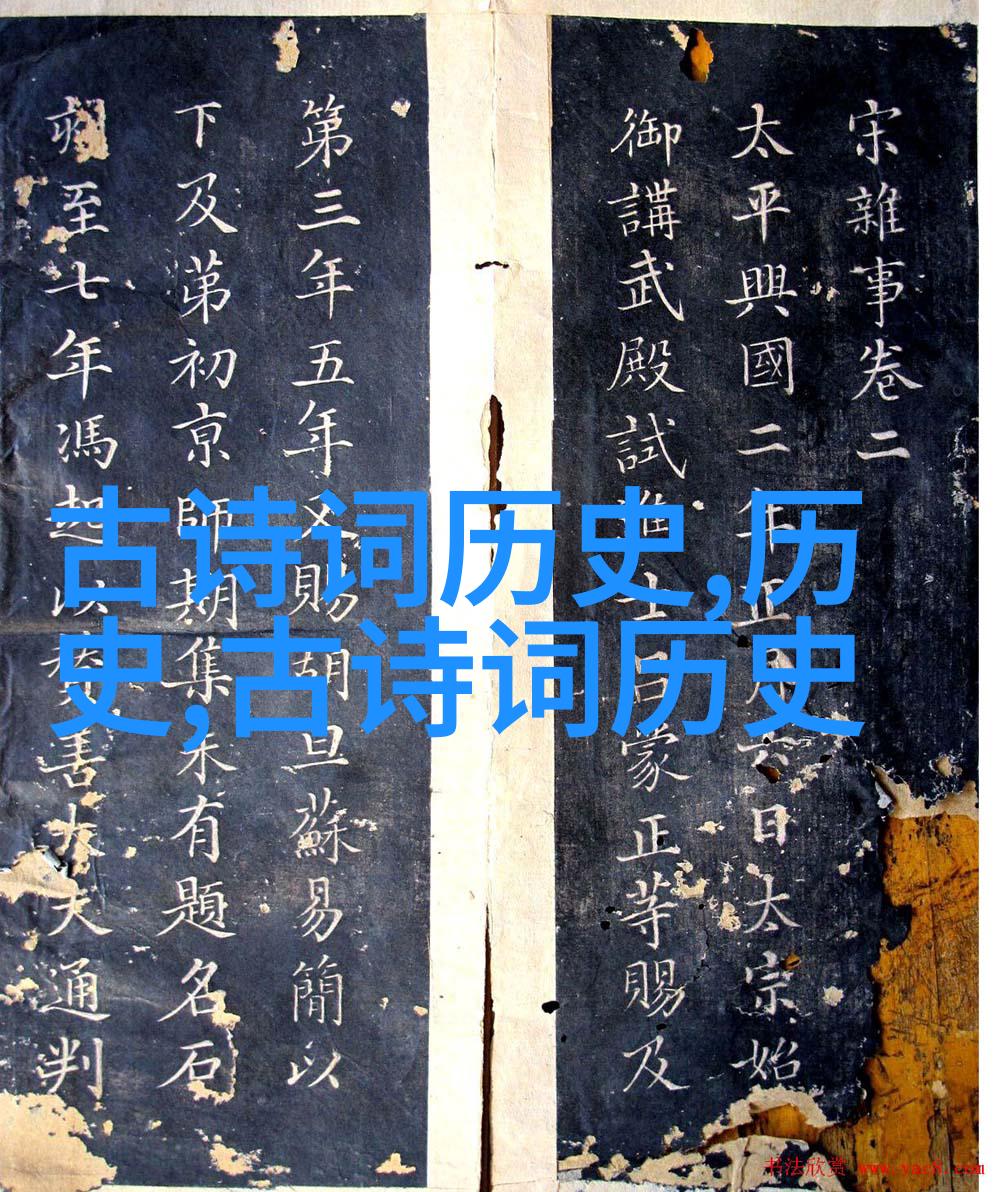 宋雜事卷二
太平興國二年正月六日太宗始
御講武殿試進士呂蒙正等賜及
第三年五年又賜胡旦蘇易簡以
下及第初京師期集未有題名石
至七年馮起以贊善大夫通判
古诗词历史,历
史,古诗词历史
书法欣赏 www.yac8.com